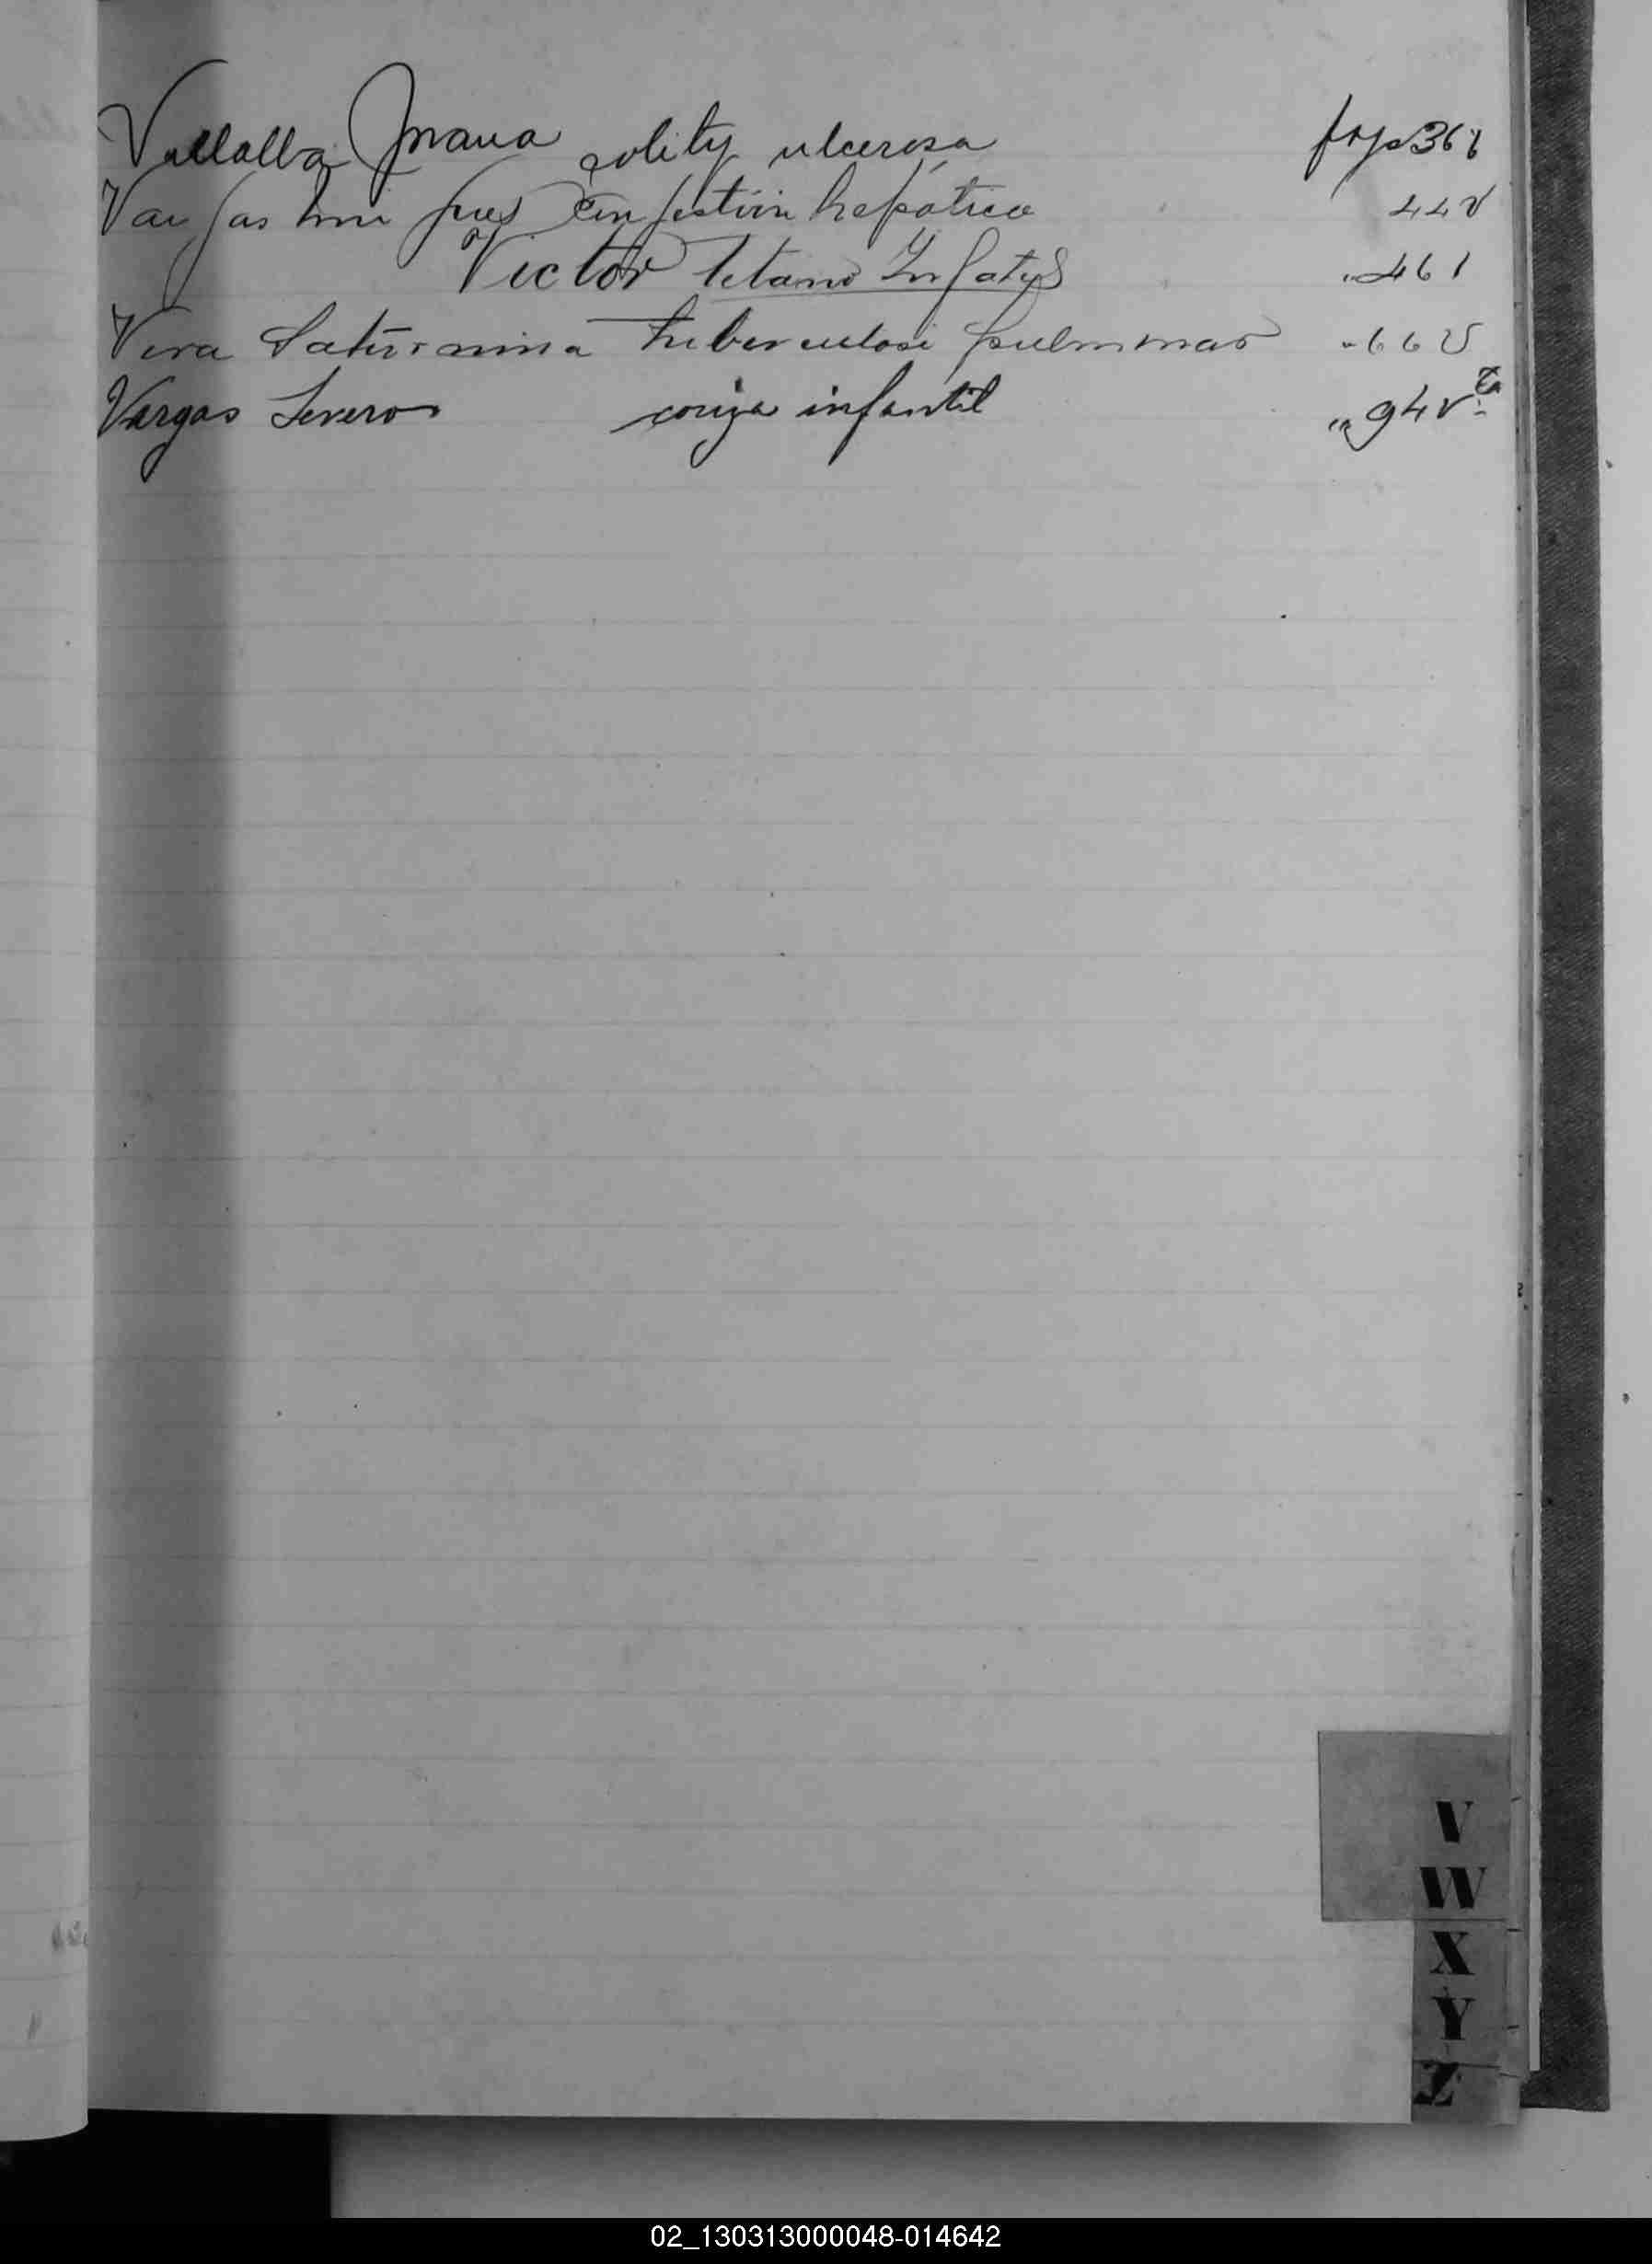 Villalba Juana colitis ulcerosa fojs 36
Vargas congestión hepática 44 v
Victor tetano Infatyl „ 46 1
Vera Saturnina tuberculosi pulmonar „ 66 v
Vargas Severo coriza infantil „ 94 vta
V
W
X
Y
Z
02_130313000048-014642